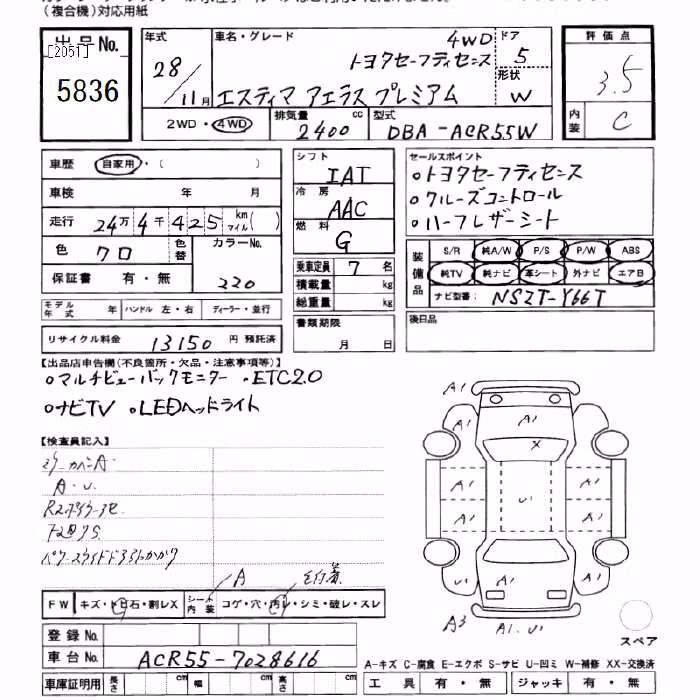 （複合機）対応用紙
出品No.
[2051]
5836
年式
28/11月
車名・グレード
4WD
トヨタセーフティセンス
エスティマ アエラス プレミアム
ドア
5
形状
W
評価点
3.5
内装
C
2WD・4WD
排気量
2400 cc
型式
DBA-ACR55W
車歴 自家用・（ ）
車検 年 月
走行 24万4千425 km マイル( )
色 クロ
色替
カラーNo.
220
保証書 有・無
モデル年式 年 ハンドル 左・右 ディーラー・並行
リサイクル料金 13150 円 預託済
シフト
IAT
冷房
AAC
燃料
G
乗車定員 7 名
積載量 kg
総重量 kg
書類期限
月 日
セールスポイント
○トヨタセーフティセンス
○クルーズコントロール
○ハーフレザーシート
装備品
S/R 純A/W P/S P/W ABS
純TV 純ナビ 革シート 外ナビ エアB
ナビ型番 NSZT-Y66T
後日品
【出品店申告欄(不良箇所・欠品・注意事項等)】
○マルチビューバックモニター ○ETC2.0
○ナビTV ○LEDヘッドライト
【検査員記入】
A・U
FW キズ・トビ石・割レX
シート内装 コゲ・穴・汚レ・シミ・破レ・スレ
A
登録No.
車台No. ACR55-7028616
車庫証明用 長さ cm 幅 cm 高さ cm
A1
A1
A1
A1
X
A1
A1
U1
A1
A1
U1
A1
A1
A3
A1.U1
スペア
A-キズ C-腐食 E-エクボ S-サビ U-凹ミ W-補修 XX-交換済
工具 有・無 ジャッキ 有・無